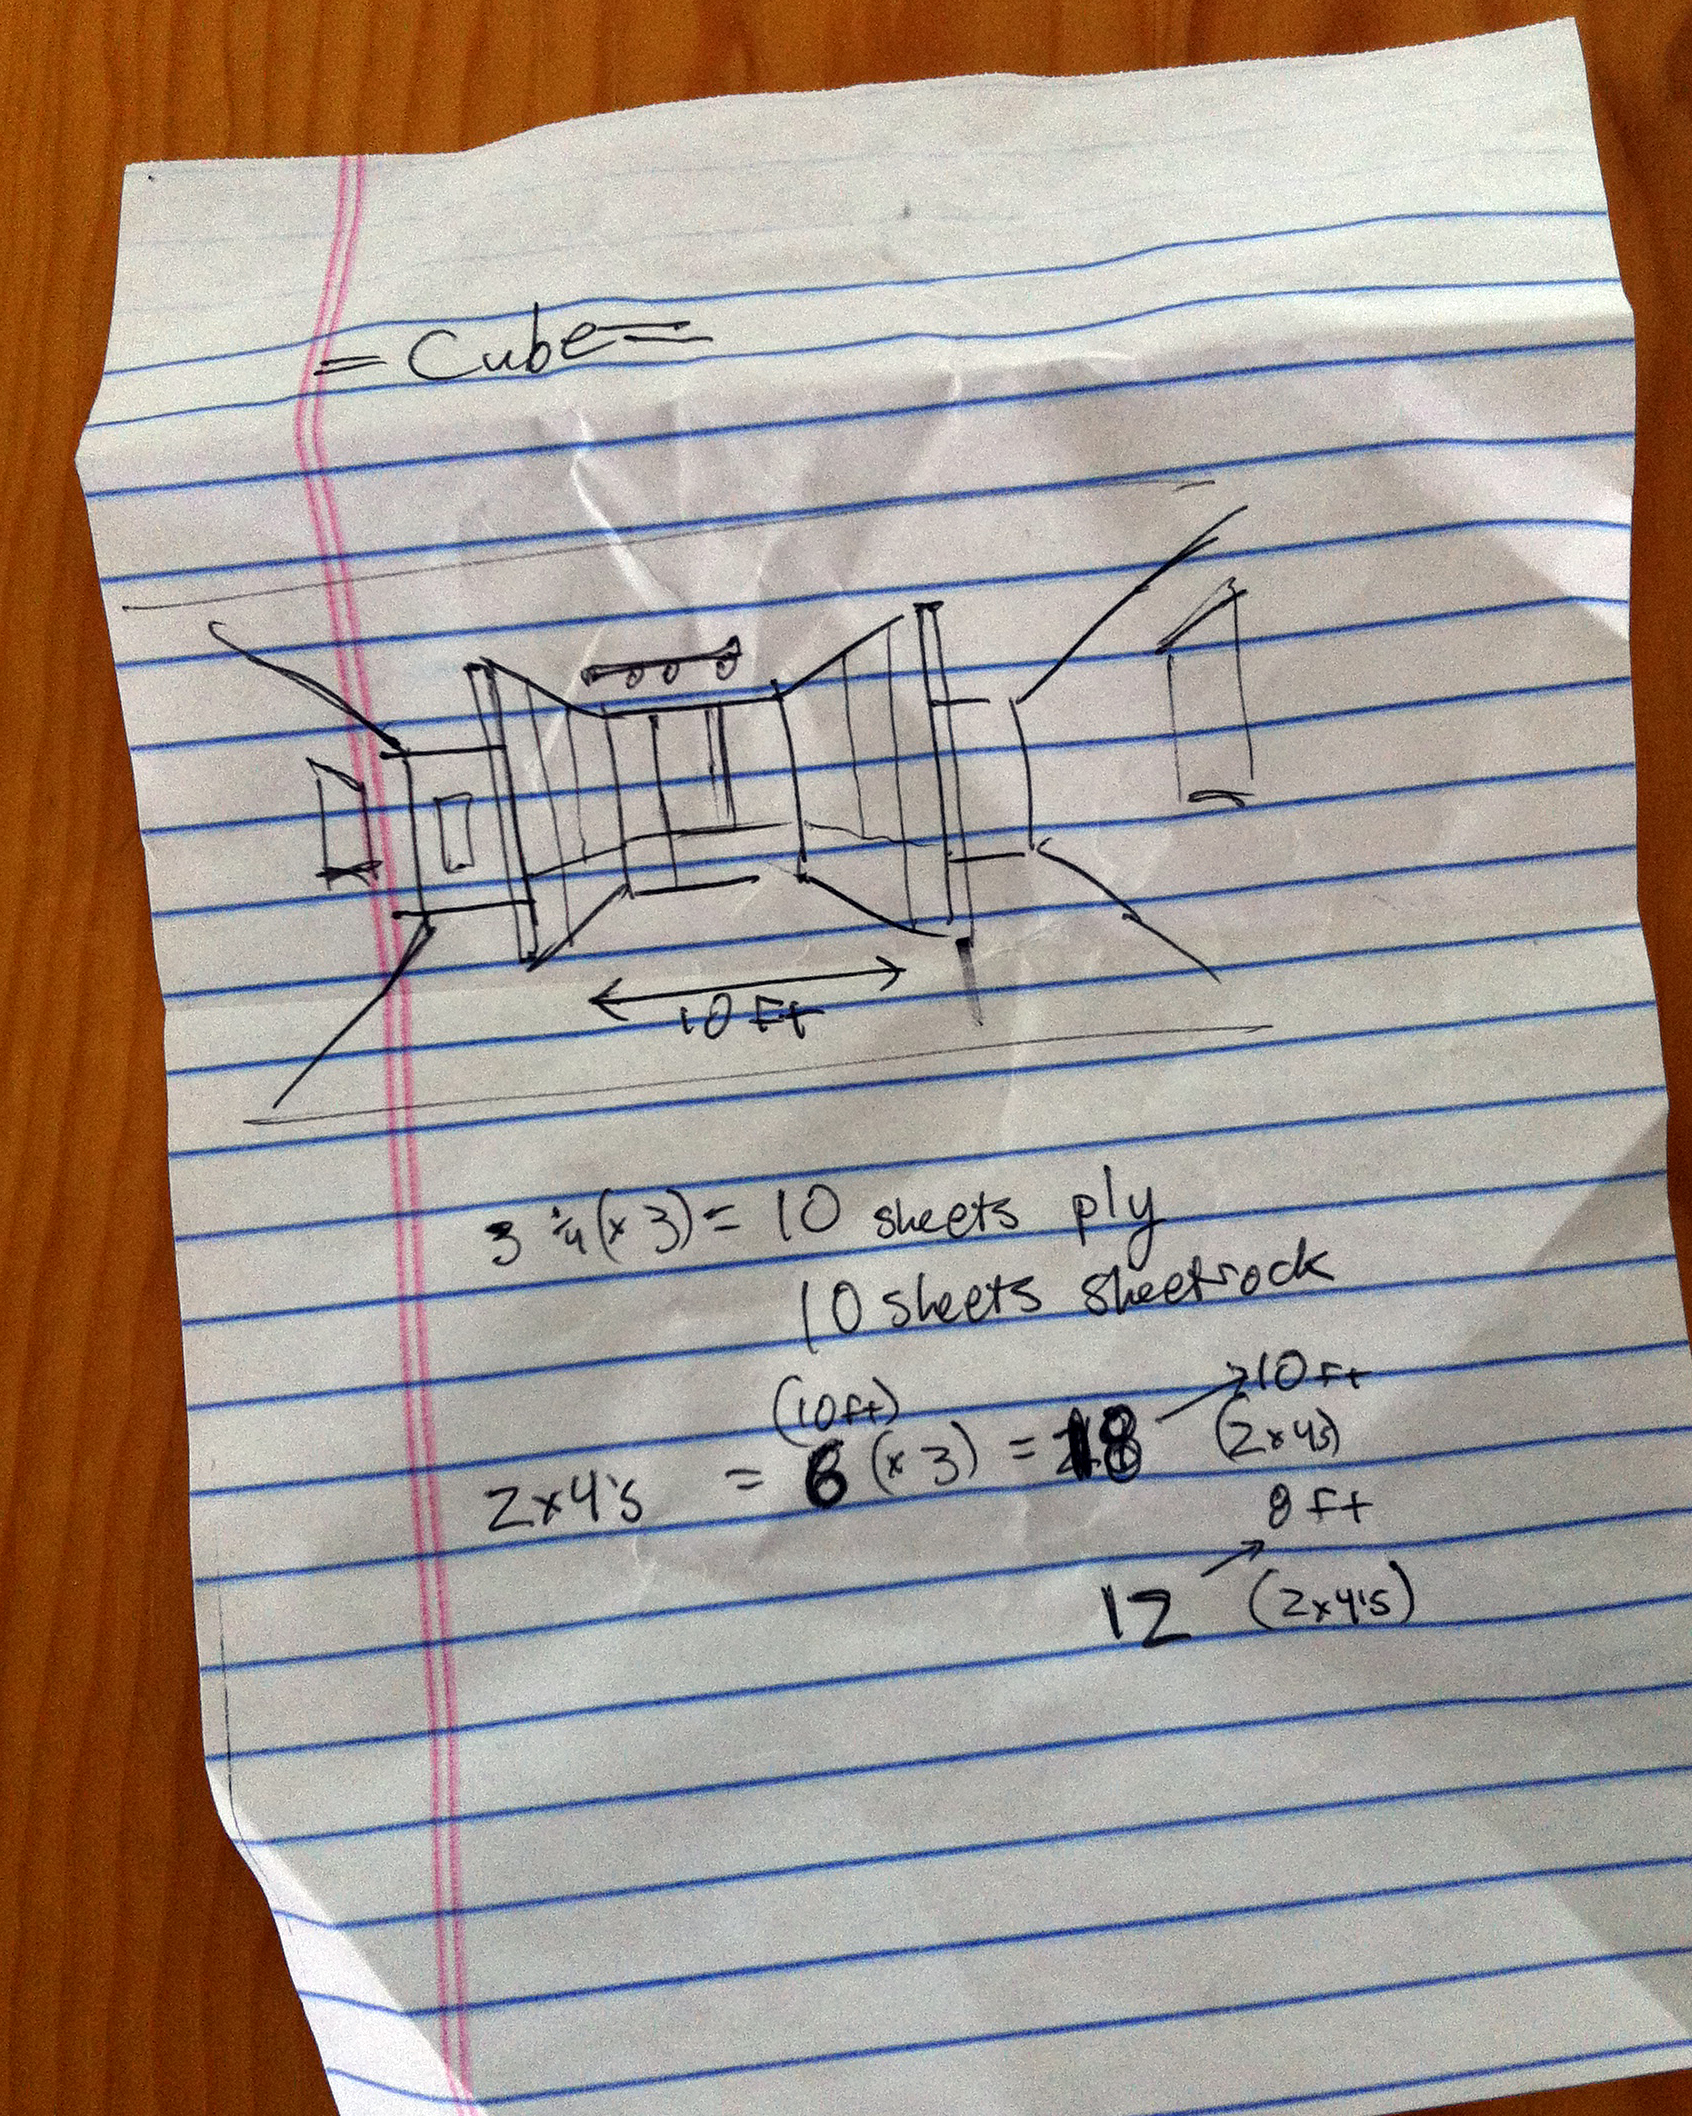 = Cube =
10 Ft
3 1/4 (x 3) = 10 sheets ply
10 sheets sheetrock
(10ft)
2x4's = 6 (x 3) = 18 → 10 Ft
(2x4s)
8 Ft
12 → (2x4's)